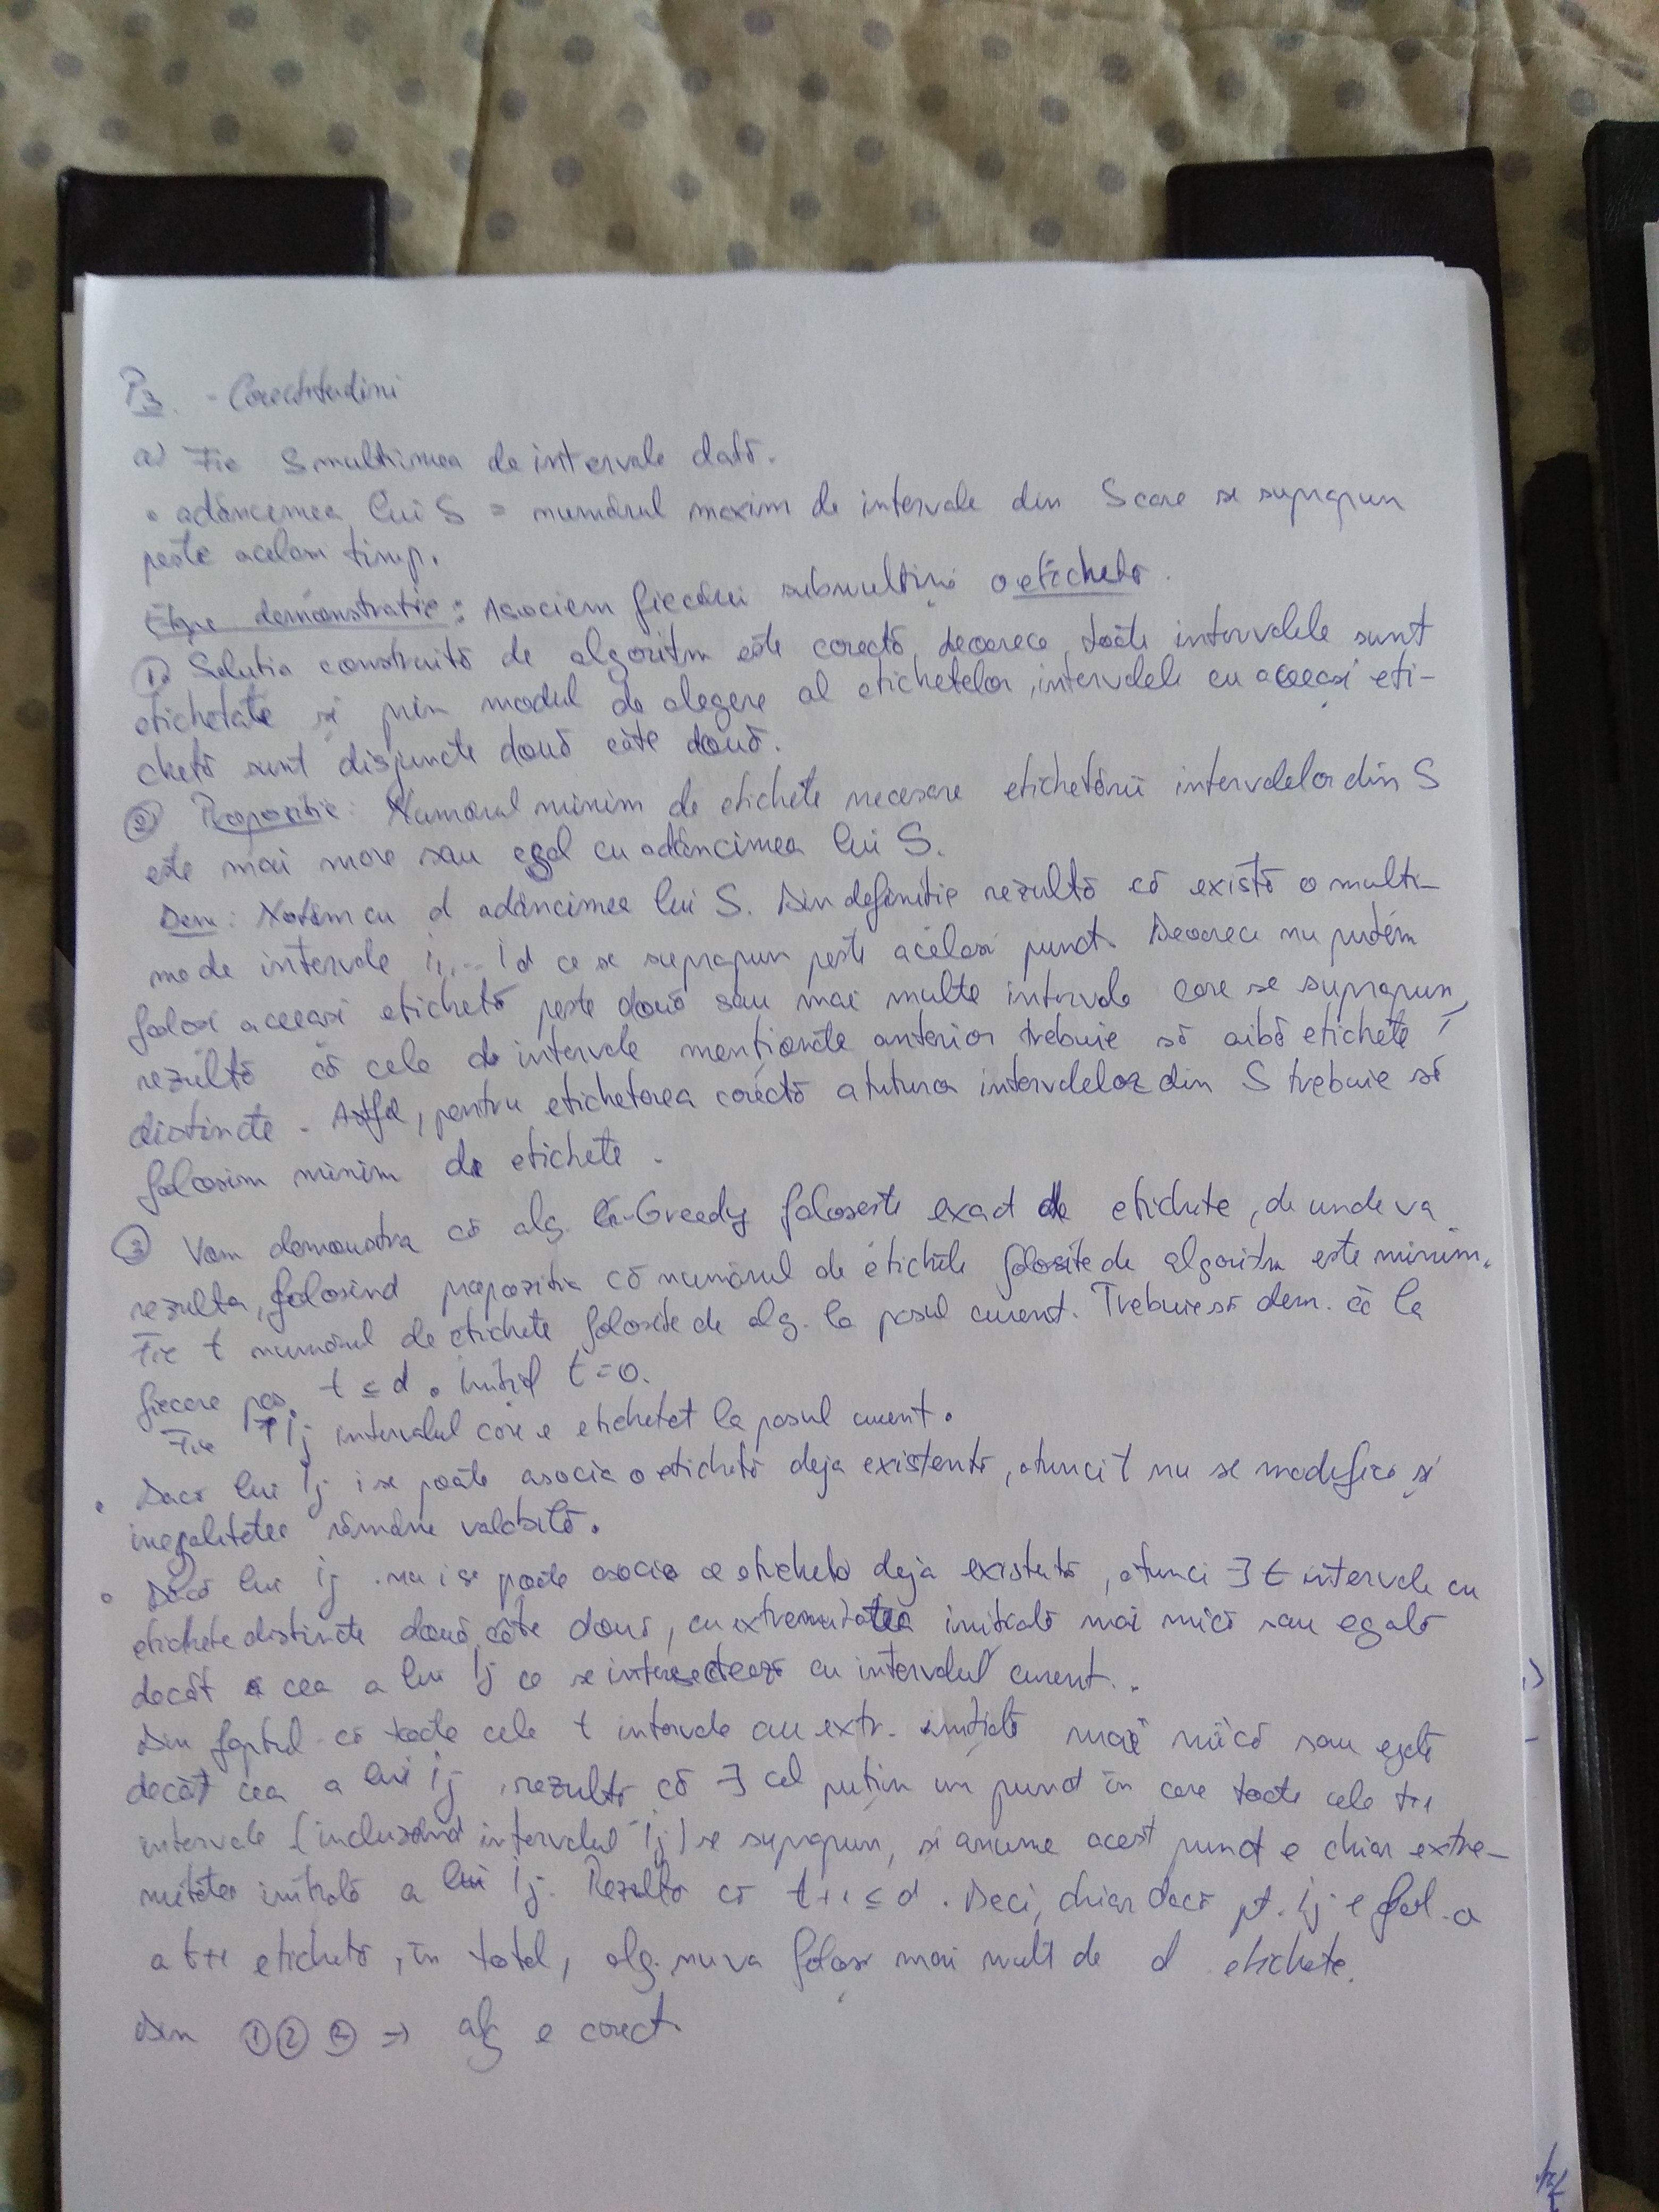 P3. - Corectitudini
a) Fie S multimea de intervale dată.
• adâncimea lui S = numărul maxim de intervale din S care se suprapun
peste acelasi timp.
Etape demonstratie: Asociem fiecărei submultimi o etichetă.
① Solutia construită de algoritm este corectă, deoarece toate intervalele sunt
etichetate și prin modul de alegere al etichetelor, intervalele cu aceeași eti-
chetă sunt disjuncte două câte două.
② Propozitie: Numărul minim de etichete necesare etichetării intervalelor din S
este mai mare sau egal cu adâncimea lui S.
Dem: Notăm cu d adâncimea lui S. Din definitie rezultă că există o multi-
me de intervale i1,... id ce se suprapun peste acelasi punct. Deoarece nu putem
folosi aceeasi etichetă peste două sau mai multe intervale care se suprapun,
rezultă că cele d intervale menționate anterior trebuie să aibă etichete
distincte. Astfel, pentru etichetarea corectă a tuturor intervalelor din S trebuie să
folosim minim d etichete.
③ Vom demonstra că alg. Greedy foloseste exact d etichete, de unde va
rezulta, folosind propozitia că numărul de etichete folosite de algoritm este minim.
Fie t numărul de etichete folosite de alg. la pasul curent. Trebuie să dem. că la
fiecare pas, t ≤ d. Initial t=0.
Fie Ij intervalul care e etichetat la pasul curent.
• Dacă lui Ij i se poate asocia o etichetă deja existentă, atunci t nu se modifică și
inegalitatea rămâne valabilă.
• Dacă lui Ij nu i se poate asocia o etichetă deja existentă, atunci ∃ t intervale cu
etichete distincte două câte două, cu extremitatea initială mai mică sau egală
decât cea a lui Ij ce se intersectează cu intervalul curent.
Din faptul că toate cele t intervale au extr. inițială mai mică sau egală
decât cea a lui Ij, rezultă că ∃ cel puțin un punct în care toate cele t+1
intervale (incluzând intervalul Ij) se suprapun, si anume acest punct e chiar extre-
mitatea initială a lui Ij. Rezultă că t+1 ≤ d. Deci, chiar dacă pt. Ij e fol. a
a t+1 etichetă, în total, alg. nu va folosi mai mult de d etichete.
Din ① ② ③ => alg e corect